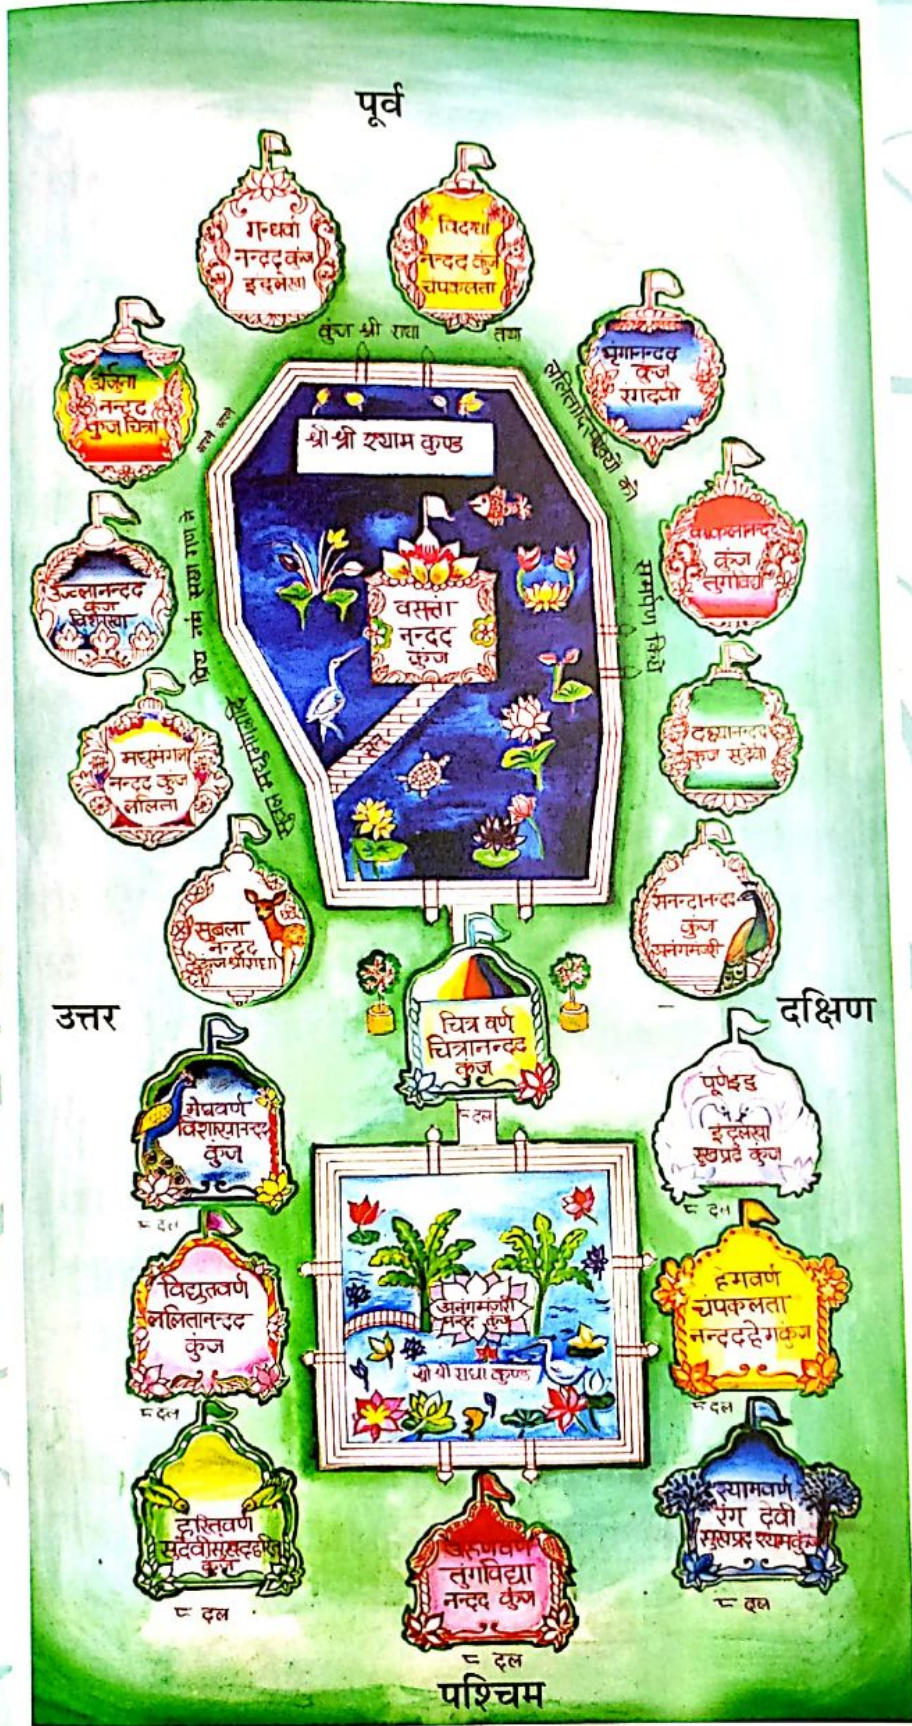 पूर्व
गन्धर्वा
नन्दद् कुंज
इन्दुलेखा
विदग्धा
नन्दद कुंज
चंपकलता
कुंज श्री राधा तथा
अर्जुना
नन्दद
कुंज चित्रा
भृंगानन्दद
कुंज
रंगदेवी
श्री श्री श्याम कुण्ड
अपने अपने
ललितादि सखियों को
समर्पण किये
कुंज
तुंगविद्या
उज्ज्वलानन्दद
कुंज
विशाखा
प्रिय नर्म सखा गण ने
वसन्ता
नन्दद
कुंज
मधुमंगल
नन्दद कुंज
ललिता
कुंज सुदेवी
सुबला
नन्दद
कुंज श्रीराधा
सनन्दानन्दद
कुंज
अनंगमंजरी
उत्तर
दक्षिण
चित्र वर्ण
चित्रानन्दद
कुंज
८ दल
मेघवर्ण
विशाखानन्दद
कुंज
८ दल
पूर्णइंदु
इंदुलेखा
सुखप्रद कुंज
८ दल
विद्युतवर्ण
ललितानन्दद
कुंज
८ दल
अनंगमंजरी
नन्दद कुंज
श्री श्री राधा कुण्ड
हेमवर्ण
चंपकलता
नन्ददहेमकुंज
८ दल
हरितवर्ण
कुंज
८ दल
अरुणवर्ण
तुंगविद्या
नन्दद कुंज
८ दल
श्यामवर्ण
रंग देवी
सुखप्रद श्यामकुंज
८ दल
पश्चिम